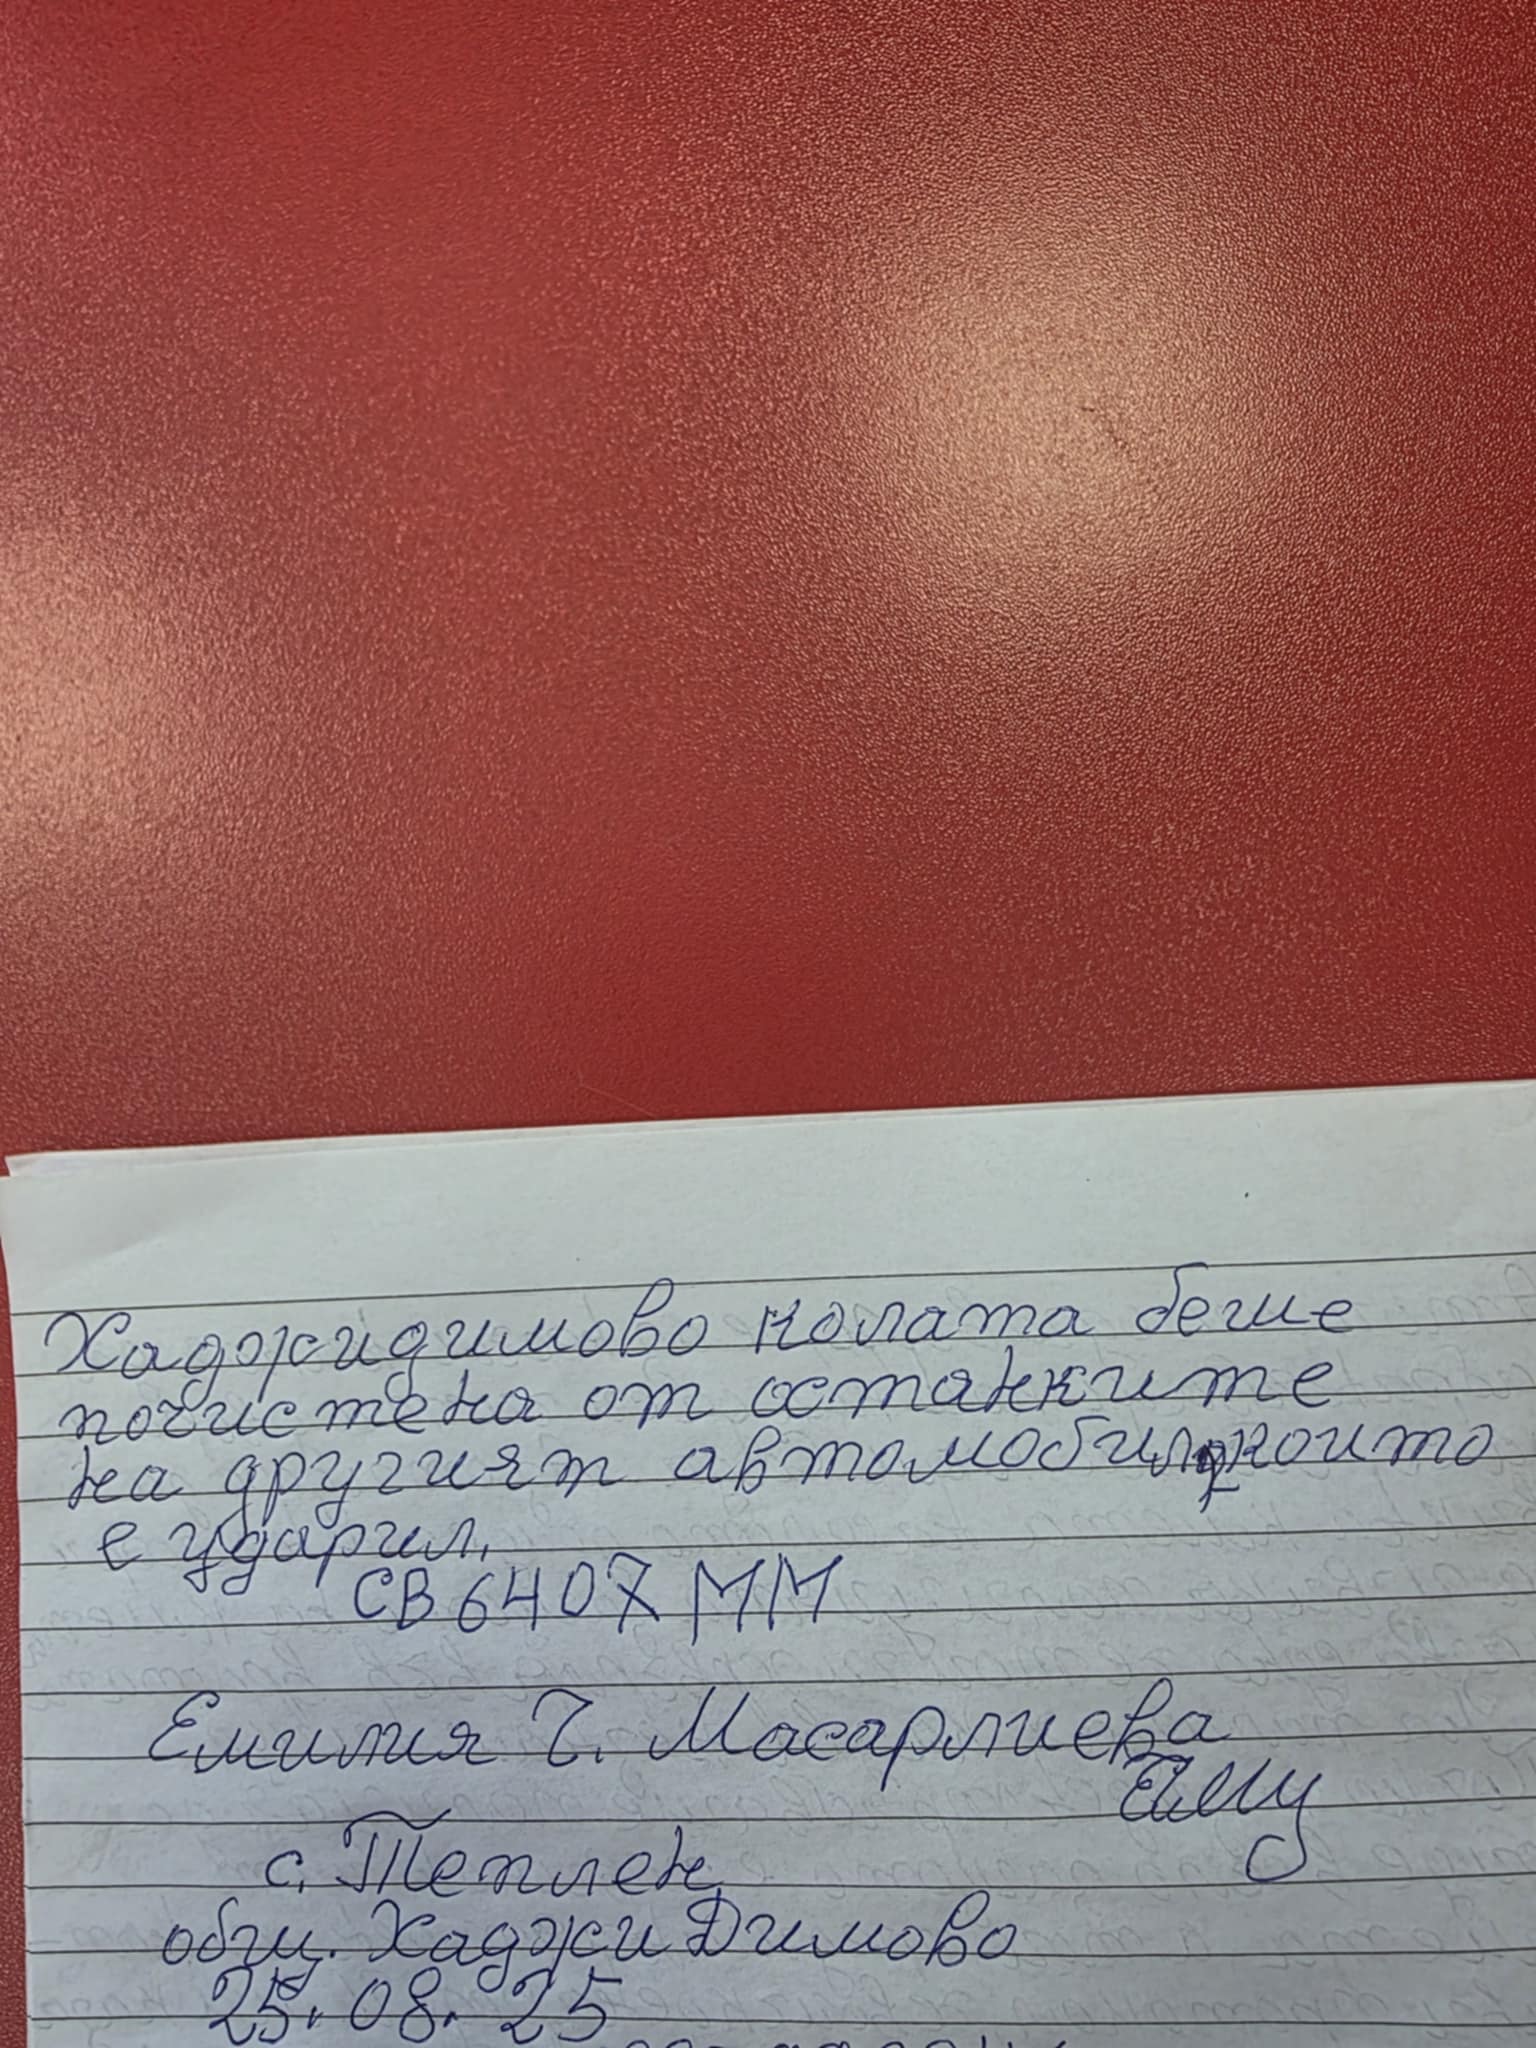 Хаджидимово колата беше
почистена от останките
на другият автомобил, който
е ударил.
СВ 6407 ММ
Емилия Г. Масарлиева
с. Теплен
общ. Хаджи Димово
25.08.25